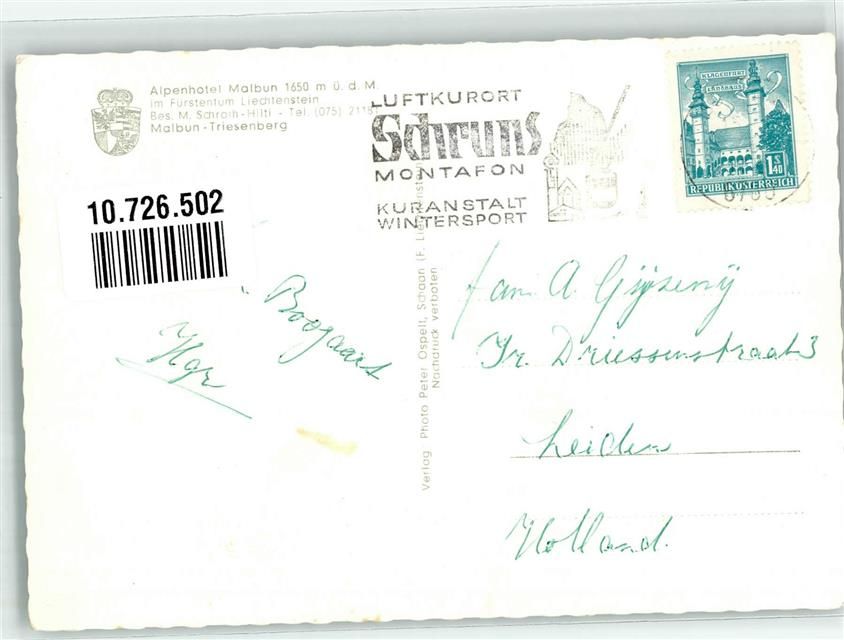 Alpenhotel Malbun 1650 m ü. d. M.
im Fürstentum Liechtenstein
Bes. M. Schroth-Hilti - Tel. (075) 21151
Malbun-Triesenberg
LUFTKURORT
Schruns
MONTAFON
KURANSTALT
WINTERSPORT
KLAGENFURT
LANDHAUS
1 S 40
REPUBLIK ÖSTERREICH
10.726.502
Boogaart
Verlag Photo Peter Ospelt, Schaan (F. Liechtenstein)
Nachdruck verboten
Fam. A.
Driessenstraat 3
Leiden
Holland.